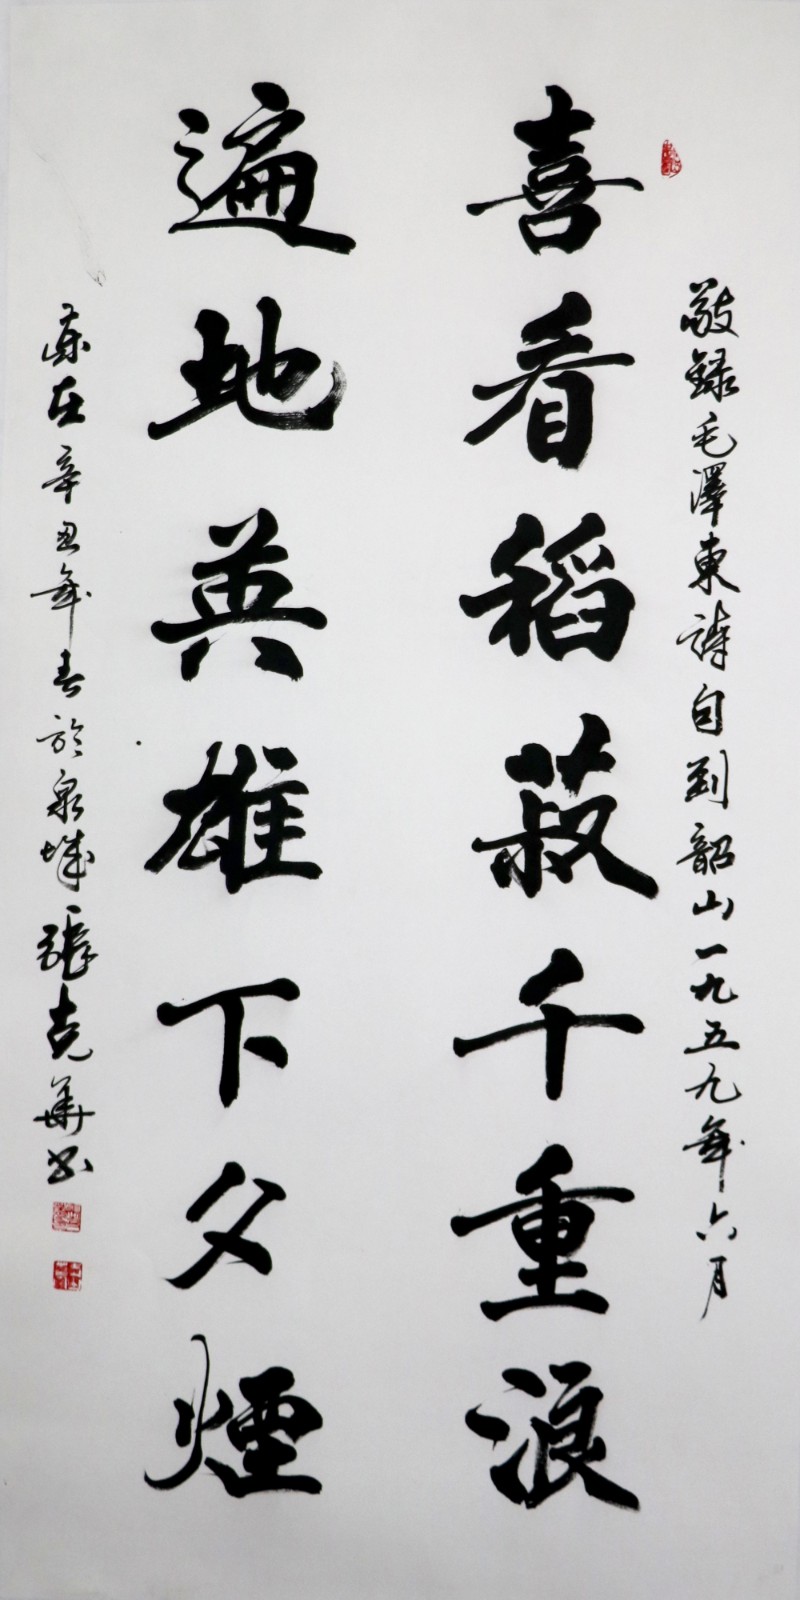 敬録毛澤東詩句到韶山一九五九年六月
喜看稻菽千重浪
遍地英雄下夕煙
歲在辛丑年春於泉城張克華書